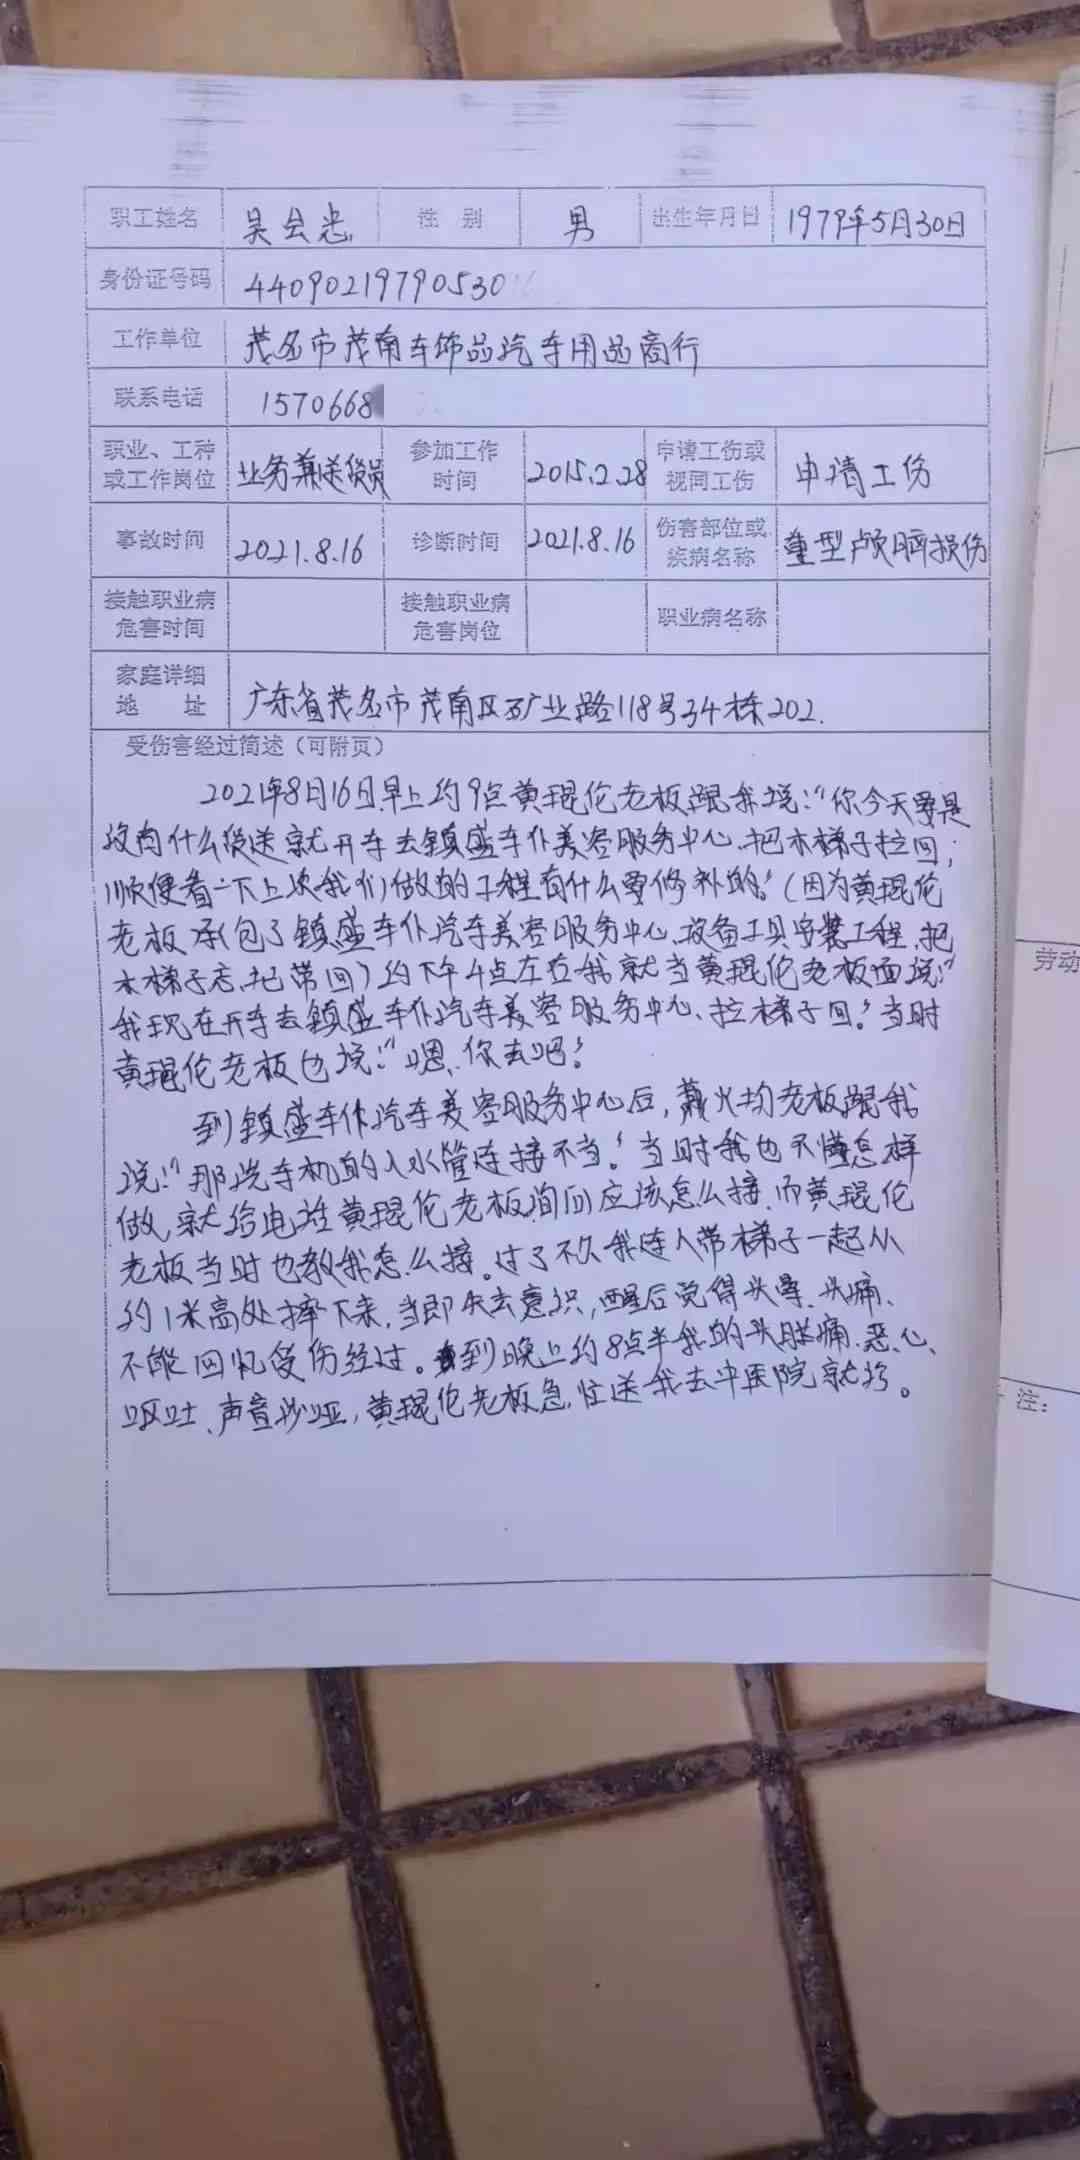 职工姓名 吴会忠 性 别 男 出生年月日 1979年5月30日
身份证号码 44090219790530
工作单位 茂名市茂南车饰品汽车用品商行
联系电话 1570668
职业、工种或工作岗位 业务兼送货员 参加工作时间 2015.2.28 申请工伤或视同工伤 申请工伤
事故时间 2021.8.16 诊断时间 2021.8.16 伤害部位或疾病名称 重型颅脑损伤
接触职业病危害时间 接触职业病危害岗位 职业病名称
家庭详细地 址 广东省茂名市茂南区矿业路118号34栋202.
受伤害经过简述（可附页）
2021年8月16日早上约9点黄琨伦老板跟我说:"你今天要是
没有什么货送就开车去镇盛车仆美容服务中心、把木梯子拉回;
顺便看一下上次我们做的工程有什么要修补的。"(因为黄琨伦
老板承包了镇盛车仆汽车美容服务中心、设备工具安装工程、把
木梯子忘记带回)约下午4点左右我就当黄琨伦老板面说:"
我现在开车去镇盛车仆汽车美容服务中心、拉梯子回。"当时
黄琨伦老板也说:"嗯、你去吧"
到镇盛车仆汽车美容服务中心后，火均老板跟我
说:"那洗车机的入水管连接不当。"当时我也不懂怎样
做、就给电话黄琨伦老板询问应该怎么接、而黄琨伦
老板当时也教我怎么接。过了不久我连人带梯子一起从
约1米高处摔下来，当即失去意识，醒后觉得头晕、头痛、
不能回忆受伤经过。到晚上约8点半我的头胀痛、恶心、
呕吐、声音沙哑，黄琨伦老板急忙送我去中医院就诊。
劳动
注：